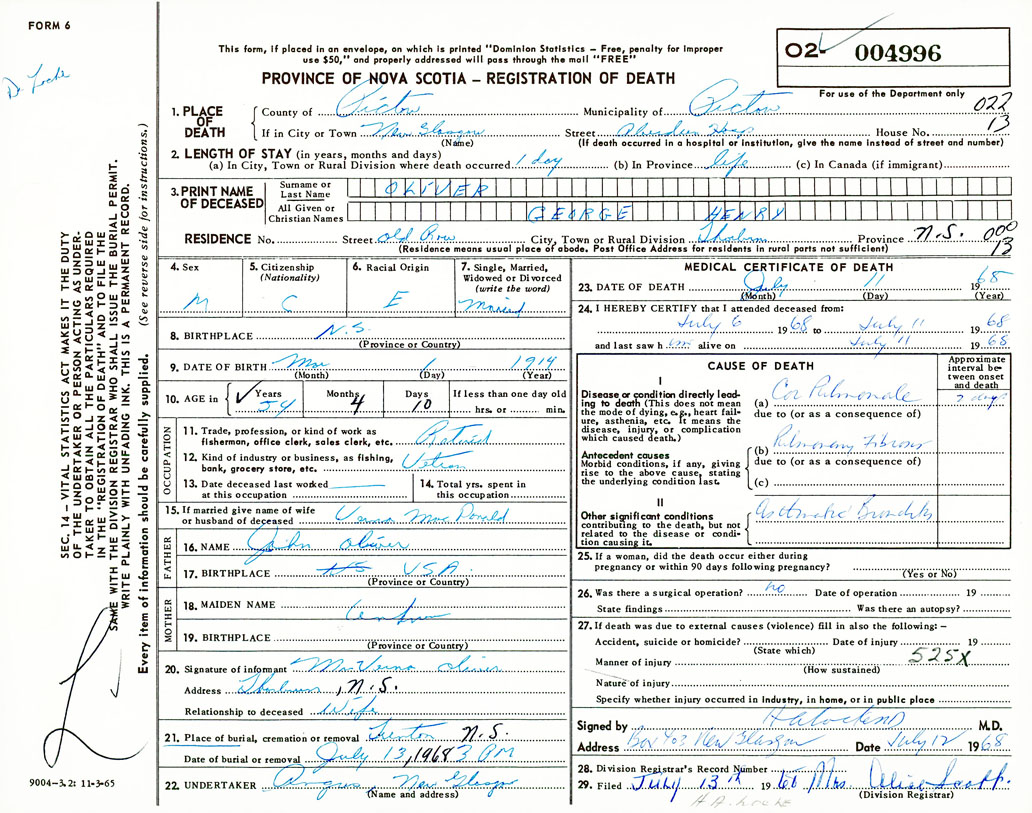 FORM 6
Dr Locke
This form, if placed in an envelope, on which is printed "Dominion Statistics — Free, penalty for improper
use $50," and properly addressed will pass through the mail "FREE"
O2- 004996
PROVINCE OF NOVA SCOTIA — REGISTRATION OF DEATH
For use of the Department only
022
13
1. PLACE OF DEATH
County of Pictou Municipality of Pictou
If in City or Town New Glasgow Street Aberdeen Hosp House No.
(Name) (If death occurred in a hospital or institution, give the name instead of street and number)
2. LENGTH OF STAY (in years, months and days)
(a) In City, Town or Rural Division where death occurred 1 day (b) In Province life (c) In Canada (if immigrant)
3. PRINT NAME OF DECEASED
Surname or Last Name OLIVER
All Given or Christian Names GEORGE HENRY
RESIDENCE No. Street Old Row City, Town or Rural Division Province N.S. 000
(Residence means usual place of abode. Post Office Address for residents in rural parts not sufficient) 13
4. Sex
M
5. Citizenship
(Nationality)
C
6. Racial Origin
E
7. Single, Married,
Widowed or Divorced
(write the word)
Married
8. BIRTHPLACE N.S.
(Province or Country)
9. DATE OF BIRTH Mar 1 1914
(Month) (Day) (Year)
10. AGE in ✓ Years 54 Months 4 Days 10 If less than one day old
hrs. or min.
OCCUPATION
11. Trade, profession, or kind of work as
fisherman, office clerk, sales clerk, etc. Retired
12. Kind of industry or business, as fishing,
bank, grocery store, etc.
13. Date deceased last worked
at this occupation
14. Total yrs. spent in
this occupation
15. If married give name of wife
or husband of deceased Verna MacDonald
FATHER
16. NAME John Oliver
17. BIRTHPLACE USA
(Province or Country)
MOTHER
18. MAIDEN NAME
19. BIRTHPLACE
(Province or Country)
20. Signature of informant Mrs Verna Oliver
Address , N.S.
Relationship to deceased Wife
21. Place of burial, cremation or removal Trenton N.S.
Date of burial or removal July 13, 1968 3 PM
22. UNDERTAKER Angus New Glasgow
(Name and address)
MEDICAL CERTIFICATE OF DEATH
23. DATE OF DEATH July 11 1968
(Month) (Day) (Year)
24. I HEREBY CERTIFY that I attended deceased from:
July 6 1968 to July 11 1968
and last saw him alive on July 11 1968
CAUSE OF DEATH
Approximate
interval be-
tween onset
and death
I
Disease or condition directly lead-
ing to death (This does not mean
the mode of dying, e.g., heart fail-
ure, asthenia, etc. It means the
disease, injury, or complication
which caused death.)
(a) Cor Pulmonale
due to (or as a consequence of)
Antecedent causes
Morbid conditions, if any, giving
rise to the above cause, stating
the underlying condition last.
(b) Pulmonary Fibrosis
due to (or as a consequence of)
(c)
II
Other significant conditions
contributing to the death, but not
related to the disease or condi-
tion causing it.
Asthmatic Bronchitis
25. If a woman, did the death occur either during
pregnancy or within 90 days following pregnancy?
(Yes or No)
26. Was there a surgical operation? no Date of operation 19
State findings Was there an autopsy?
27. If death was due to external causes (violence) fill in also the following: —
Accident, suicide or homicide? Date of injury 19
(State which)
525X
Manner of injury
(How sustained)
Nature of injury
Specify whether injury occurred in industry, in home, or in public place
Signed by M.D.
Address Box 403 New Glasgow Date July 12 1968
28. Division Registrar's Record Number
29. Filed July 13th 1968 Mrs.
(Division Registrar)
H A Locke
SEC. 14 — VITAL STATISTICS ACT MAKES IT THE DUTY
OF THE UNDERTAKER OR PERSON ACTING AS UNDER-
TAKER TO OBTAIN ALL THE PARTICULARS REQUIRED
IN THE "REGISTRATION OF DEATH" AND TO FILE THE
SAME WITH THE DIVISION REGISTRAR WHO SHALL ISSUE THE BURIAL PERMIT.
WRITE PLAINLY WITH UNFADING INK. THIS IS A PERMANENT RECORD.
Every item of information should be carefully supplied. (See reverse side for instructions.)
9004-3.2: 11-3-65